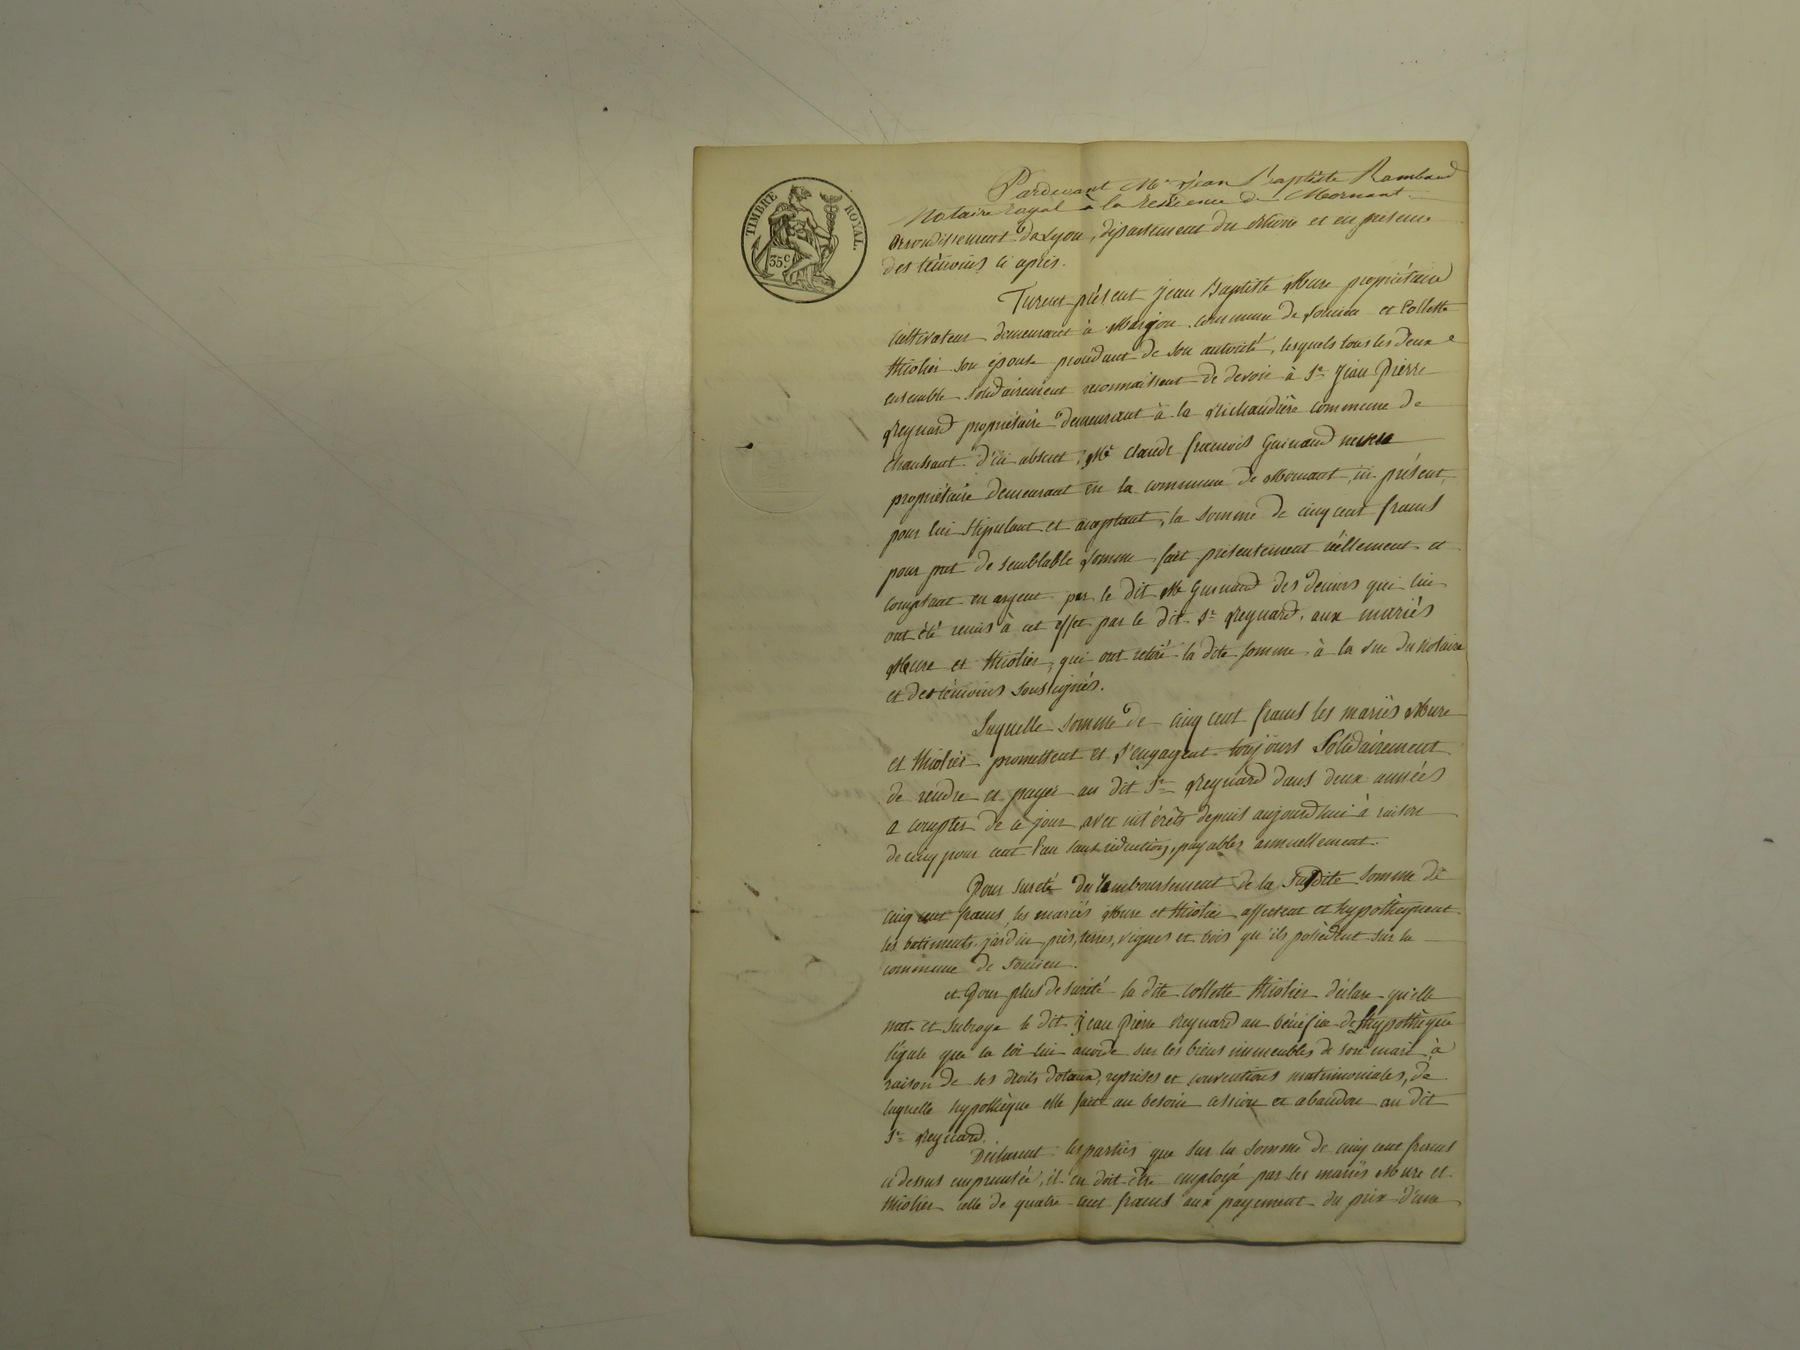 TIMBRE ROYAL.
35c
Pardevant Me Jean Baptiste Rambaud
Notaire royal à la résidence de Mornant
arrondissement de Lyon, département du Rhône et en présence
des témoins ci après.
Furent présent Jean Baptiste Mure propriétaire
cultivateur demeurant à Marjon commune de Soucieu et Collette
Thiolier son épouse procédant de son autorité, lesquels tous les deux
ensemble solidairement reconnaissent de devoir à Sr Jean Pierre
Reynard propriétaire demeurant à la Richaudière commune de
Chaussant d'ici absent, Me Claude François Guinand
propriétaire demeurant en la commune de Mornant, ici présent,
pour lui stipulant et acceptant, la somme de cinq cent francs
pour pret de semblable somme fait présentement réellement et
comptant en argent par le dit Me Guinand des deniers qui lui
ont été remis à cet effet par le dit Sr Reynard, aux mariés
Mure et Thiolier, qui ont retiré la dite somme à la vue du notaire
et des témoins soussignés.
Laquelle somme de cinq cent francs les mariés Mure
et Thiolier promettent et s'engagent toujours solidairement
de rendre et payer au dit Sr Reynard dans deux années
a compter de ce jour avec intérêts depuis aujourd'hui à raison
de cinq pour cent l'an sans réduction, payables annuellement.
Pour sureté du remboursement de la susdite somme de
cinq cent francs les mariés Mure et Thiolier affectent et hypothèquent
les batiments, jardin, près, terres, vignes et bois qu'ils possèdent sur la
commune de Soucieu.
et Pour plus de sureté la dite Collette Thiolier déclare qu'elle
met et subroge le dit Jean Pierre Reynard au bénéfice de l'hypothèque
légale que la loi lui accorde sur les biens immeubles de son mari à
raison de ses droits dotaux, reprises et conventions matrimoniales, de
laquelle hypothèque elle fait au besoin cession et abandon au dit
Sr Reynard.
Déclarent les parties que sur la somme de cinq cent francs
ci dessus empruntée, il en doit être employé par les mariés Mure et
Thiolier celle de quatre cent francs aux payement du prix d'une